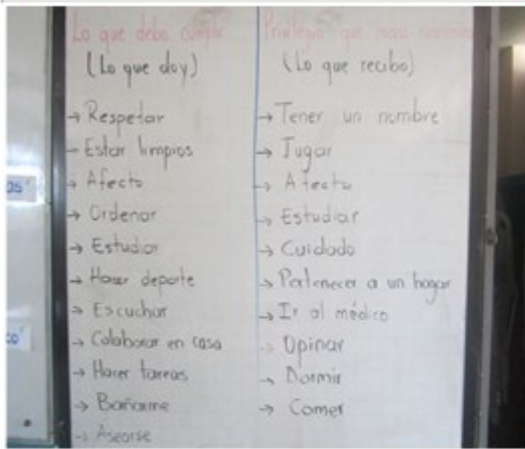 Lo que debo cumplir
(Lo que doy)
→ Respetar
→ Estar limpios
→ Afecto
→ Ordenar
→ Estudiar
→ Hacer deporte
→ Escuchar
→ Colaborar en casa
→ Hacer tareas
→ Bañarme
→ Asearse
Privilegio que
(Lo que recibo)
→ Tener un nombre
→ Jugar
→ Afecto
→ Estudiar
→ Cuidado
→ Pertenecer a un hogar
→ Ir al médico
→ Opinar
→ Dormir
→ Comer